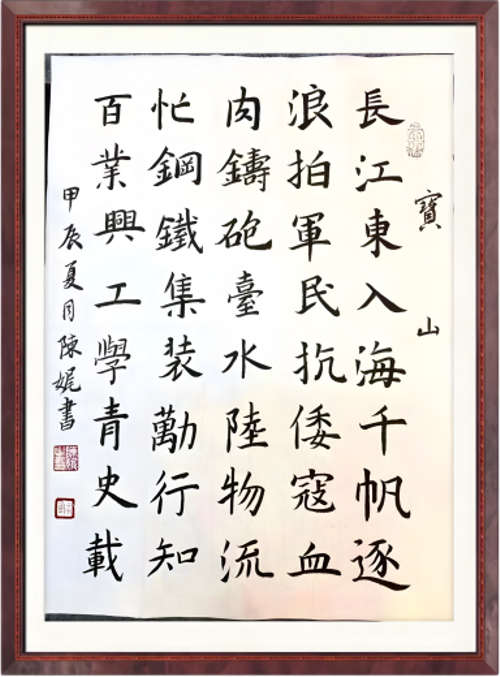 寶山
長江東入海千帆逐
浪拍軍民抗倭寇血
肉鑄砲臺水陸物流
忙鋼鐵集装勱行知
百業興工學青史載
甲辰夏月陳娓書